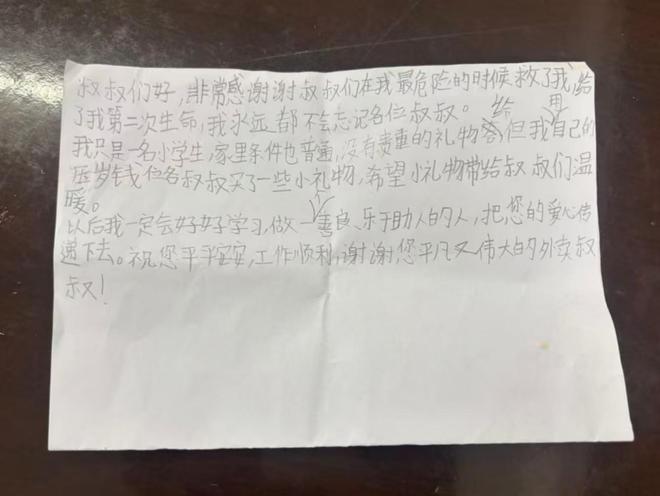 叔叔们好,非常感谢谢叔叔们在我最危险的时候救了我,给
了我第二次生命,我永远都不会忘记各位叔叔。
我只是一名小学生,家里条件也普通,没有贵重的礼物给,但我用自己的
压岁钱位各叔叔买了一些小礼物,希望小礼物带给叔叔们温
暖。
以后我一定会好好学习,做一善良、乐于助人的人,把您的爱心传
递下去。祝您平平安安,工作顺利,谢谢您平凡又伟大的外卖叔
叔!